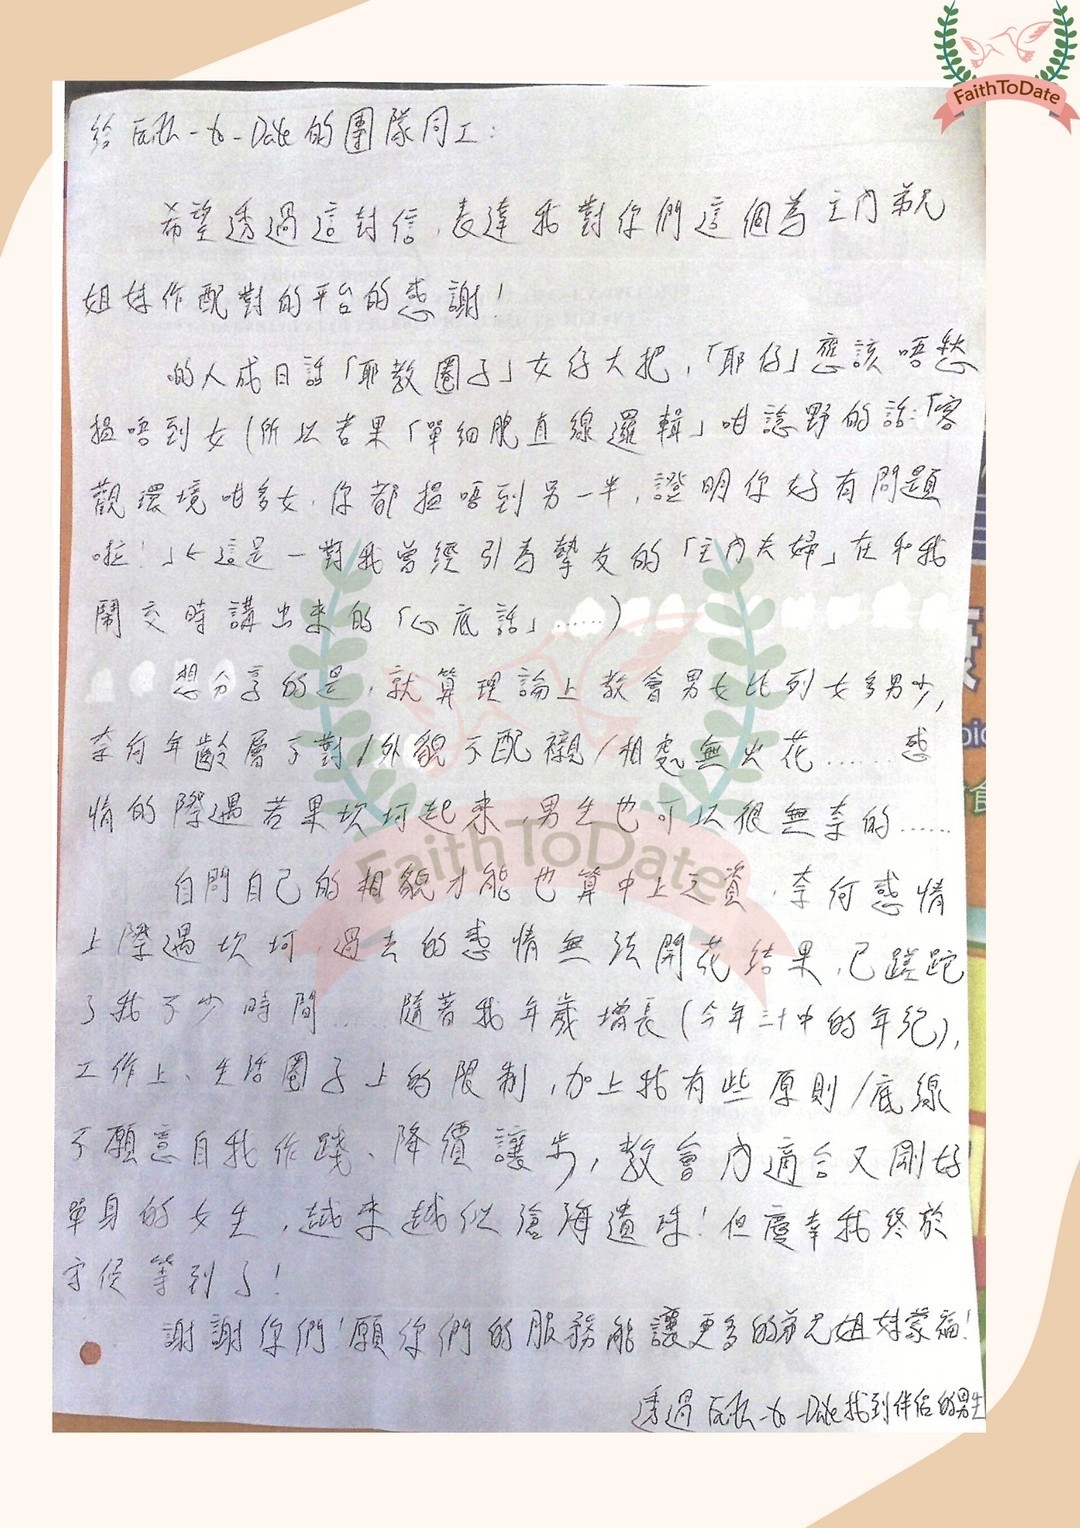 FaithToDate
給 Faith-to-Date 的團隊同工:
希望透過這封信,表達我對你們這個為主內弟兄
姐妹作配對的平台的感謝!
的人成日話「耶教圈子」女仔大把,「耶仔」應該唔愁
搵唔到女(所以若果「單細胞直線邏輯」咁諗野的話:「客
觀環境咁多女,你都搵唔到另一半,證明你好有問題
啦!」← 這是一對我曾經引為摯友的「主內夫婦」在和我
鬧交時講出來的「心底話」......)
想分享的是,就算理論上教會男女比列女多男少,
奈何年齡層不對/外貌不配襯/相處無火花......感
情的際遇若果坎坷起來,男生也可以很無奈的......
FaithToDate
自問自己的相貌才能也算中上之資,奈何感情
上際遇坎坷,過去的感情無法開花結果,已蹉跎
了我不少時間... 隨著我年歲增長(今年三十中的年紀),
工作上、生活圈子上的限制,加上我有些原則/底線
不願意自我作踐、降價讓步,教會內適合又剛好
單身的女生,越來越似滄海遺珠!但慶幸我終於
守候等到了!
謝謝你們!願你們的服務能讓更多的弟兄姐妹蒙福!
透過 Faith-to-Date 找到伴侶的男生